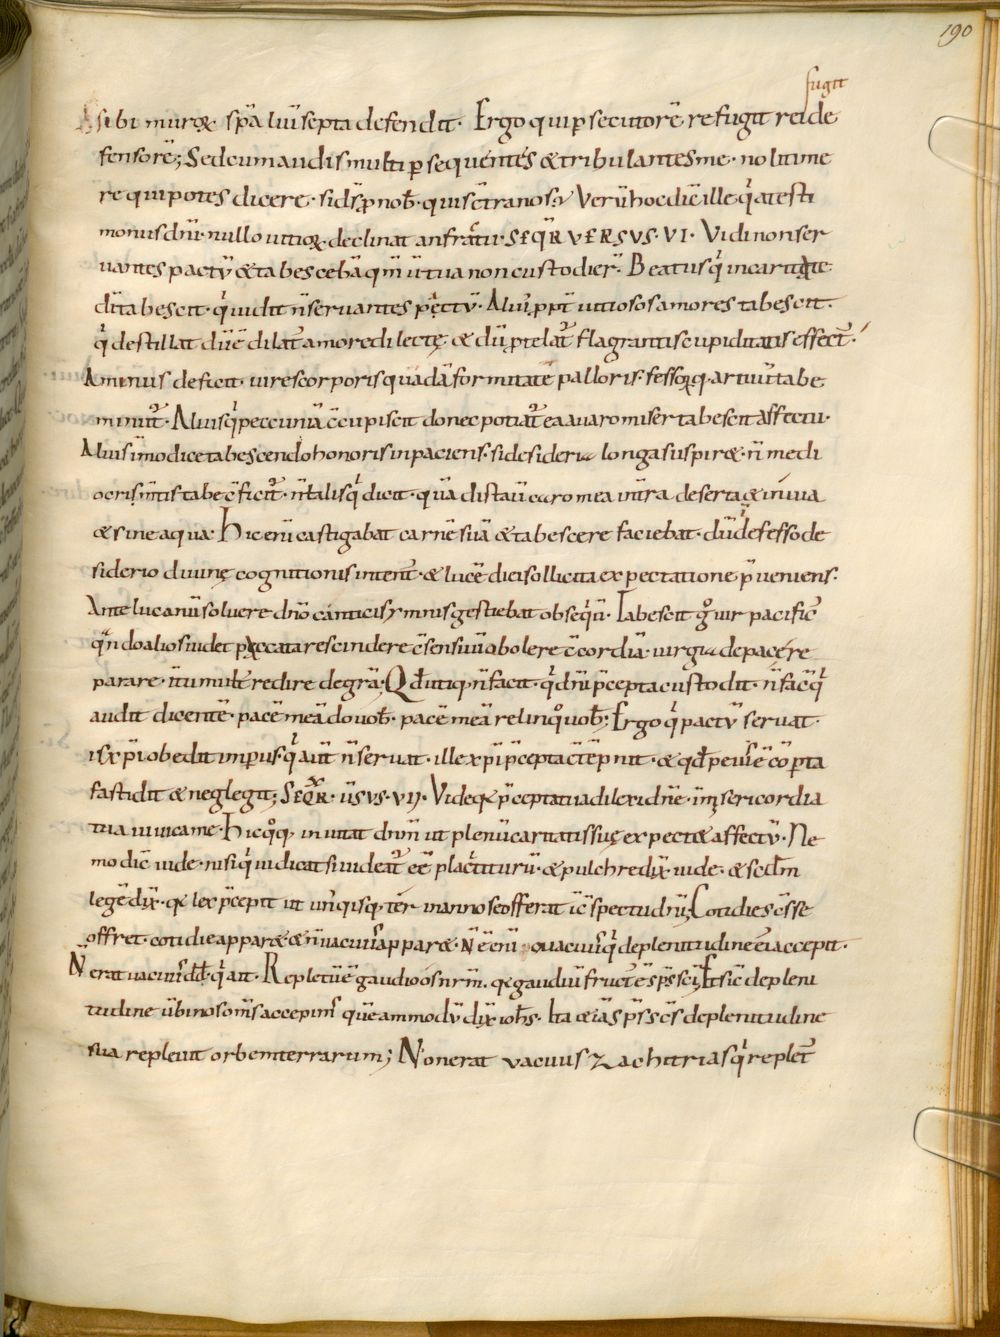 190
fugit
A sibi muroꝗ sp̄alia septa defendit. Ergo qui persecutorē refugit rei de
fensorē; Sed cum audis multi ꝑsequentes &tribulantes me. noli time
re qui potes dicere. si d̄s ꝓ nob̄. quis c̄tra nos; Verū hoc dic̄ ille q' a testi
moniis dn̄i. nullo uitioꝝ declinat anfractu. SEQ̄R VERSVS. VI. Vidi non ser
uantes pactū &tabesceba qm̄ tua non custodier̄. Beatus q' in caritate
dī tabescit. q' uidit n̄ seruantes pactū. Alius ppt̄ uitiosos amores tabescit.
q' destillat dilat amore dilectę. & dū flagrantis cupiditatis effect
Aminus deficit uires corporis quadā formitate palloris. fessoꝝq. artuū tabe
Alius q' peccuniā c̄cupiscit donec potiat ea auaro miser tabescit affectu.
Alius īmodice tabescendo honoris inpaciens. si desideria longa suspir&. n̄ medi
ocris m̄tis tabe c̄ficit. n̄ talis q' dicit. quā distau caro mea in tra deserta & inuia
& sine aqua. Hic enī castigabat carnē suā &tabescere faciebat. dū defesso de
siderio diuinę cognitionis intent. & lucē diei sollicita expectatione p̄ueniens.
Ante lucanū soluere dn̄o canticis ymnis gestiebat obseq̄n. Tabescit g° uir pacific
q̄n do alios uidet peccata rescindere c̄sensiuī abolere c̄cordiā. uirgia de pace re
parare. redire de gr̄a; Qd utiq. n̄ facit. q' dn̄i p̄cepta custodit. n̄ fac q'
audit dicentē. pacē meā do uob̄. pacē meā relinqo uob̄; Ergo q' pactū seruat.
is xp̄i obedit q' aut n̄ seruat. ille xp̄i p̄cepta & qd
fastidit & neglegit; SEQ̄R. ūSVS. VIJ. Vide qa p̄cepta tua dilexi dn̄e. in misericordia
tua uiuica me. Hic qoq. inuitat dnm̄ ut plenū caritatis suę expect& affectū. Ne
mo dic̄ uide. nisi q' iudicat si uideat eē placiturū. & pulchre dix̄ uide. & scd̄m
legē dix̄. qa lex p̄cepit ut un'qisq. ter in anno se offerat īc̄spectu dn̄i; Cotidie scs̄ se
offret. cotidie appar& & n̄ uacuus appar&. Nē enī uacuus q' de plenitudine ei accepit.
N̄ erat uacuus dd̄. q' ait. Repletū ē gaudio os nrm̄. qa gaudiū fruct ē sp̄s sc̄i; Et sic̄ de pleni
tudine ubi nos om̄s accepim' quēammodū dix̄ ioh̄s. Ita & iā sp̄s sc̄s de plenitudine
sua repleuit orbem terrarum; Non erat vacuus zachirias q' replet